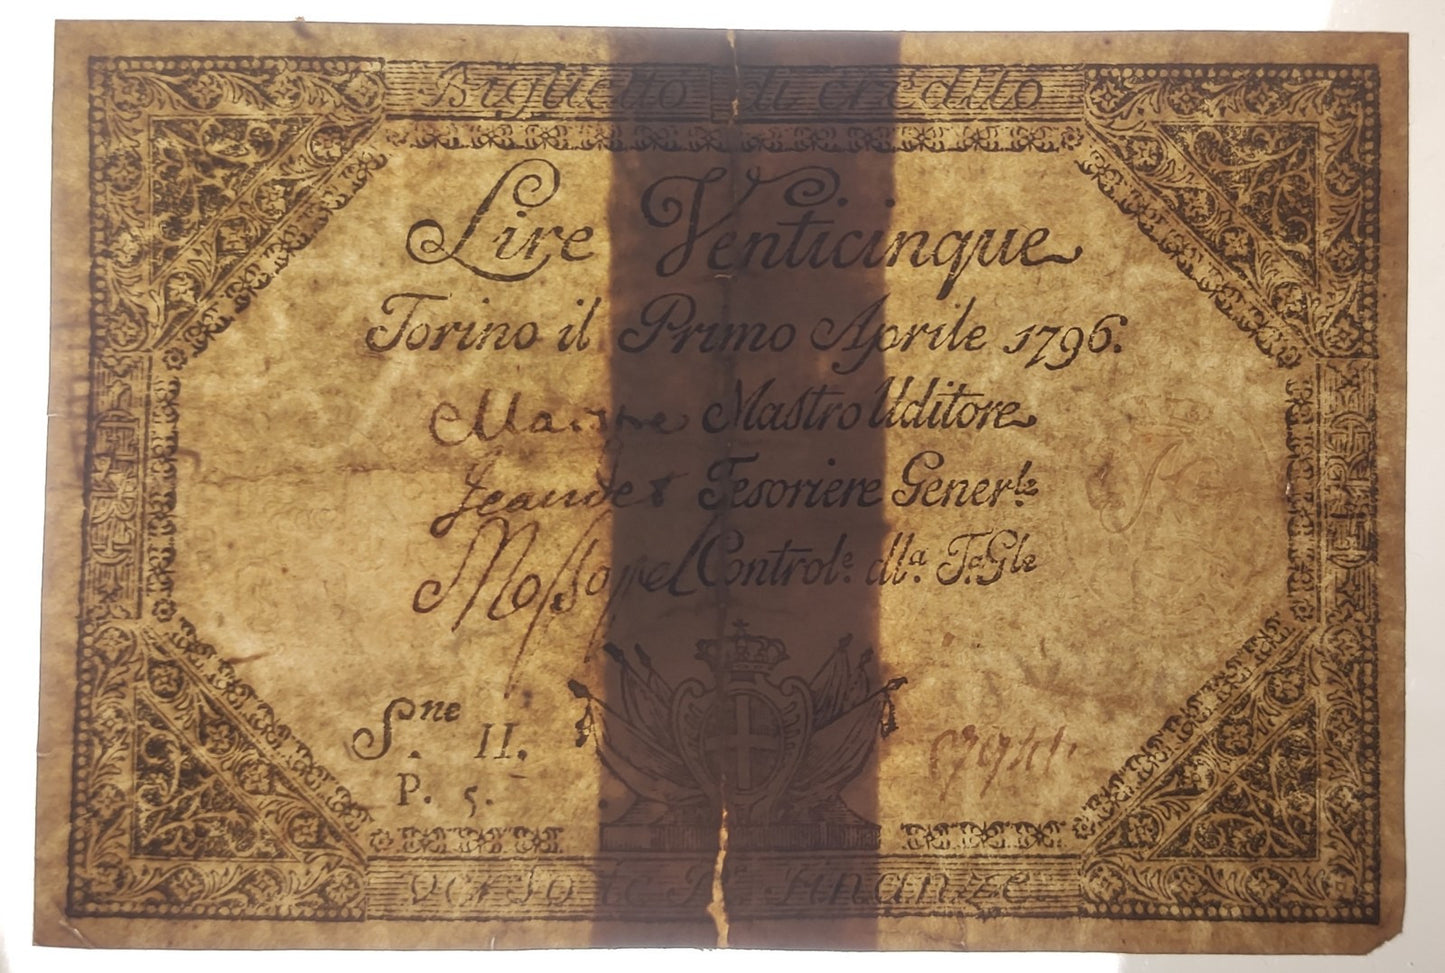 Biglietto di credito
Lire Venticinque
Torino il Primo Aprile 1796.
Mastro Uditore
Jeaudet Tesoriere Gener.le
Control.e dla. T.a Gle
S.ne II.
P. 5.
verso le R. Finanze